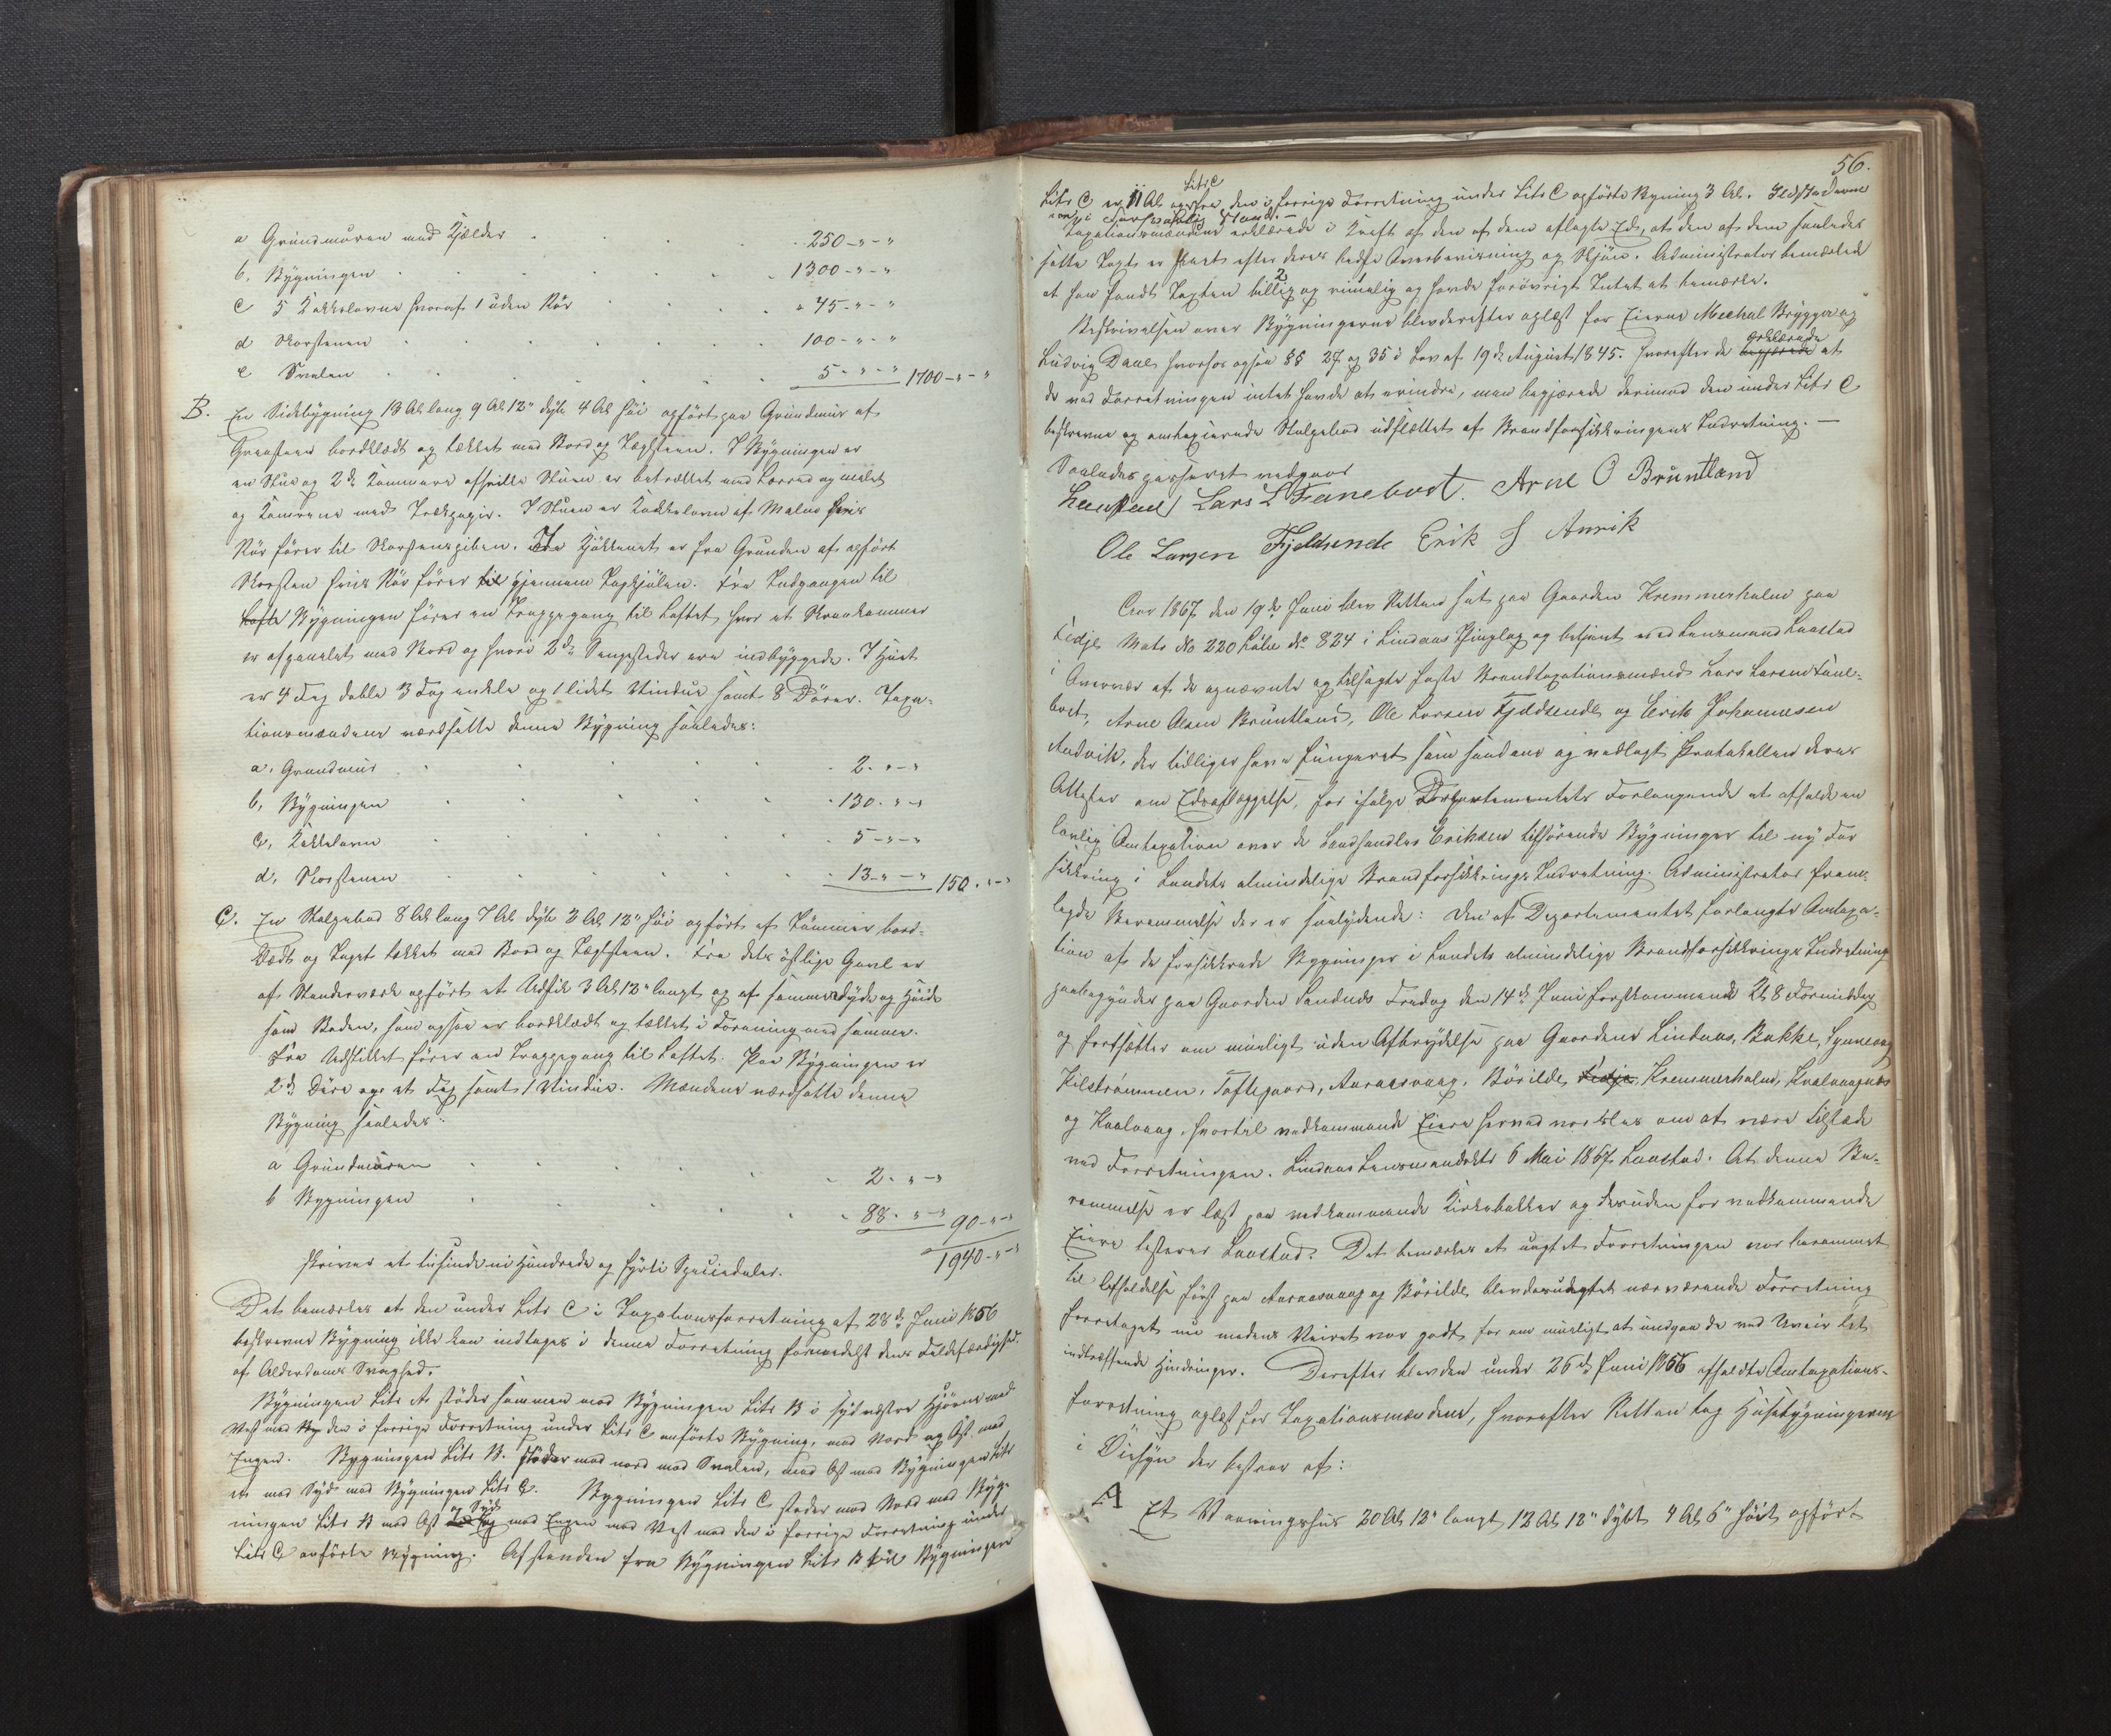 a Grundmuren med Kjælder . . . . 250-"-"
b, Bygningen . . . . . . 1300-"-"
c 5 Kakkelovne hvoraf 1 uden Rör . . . 45-"-"
d Skorstenen . . . . . . 100-"-"
e Svalen . . . . . . 5-"-" 1700-"-"
B. En Sidebygning 13 Al lang 9 Al 12" dyb 4 Al höi opfört paa Grundmur af
Graasteen bordklædt og tækket med Bord og Tagsteen. I Bygningen er
en Stue og 2de Kammere afskilte Stuen er betrækket med Lærred og malet
og Kamrene med Trækpapir. I Stuen er Kakkelovn af Malm hvis
Rör förer til Skorstenspiben. I Kjökkenet er fra Grunden af opfört
Skorsten hvis Rör förer til gjennem Tagkjölen. Fra Indgangen til
Lofte Bygningen förer en Trappegang til Loftet hvor et Kammer
er afpanelet med Bord og hvori 2de Sengesteder ere indbyggede. I Huset
er 4 Fag doble 3 Fag enkle og 1 lidet Vindue samt 8 Dörer. Taxa-
tionsmændene værdsatte denne Bygning saaledes:
a, Grundmur . . . . . . 2. "-"
b, Bygningen . . . . . . 130. "-"
c, Kakkelovn . . . . . . 5-"-"
d, Skorstenen . . . . . . 13-"-" 150.-"-"
C. En Stolpebod 8 Al lang 7 Al dyb 3 Al 12" höi opfört af Tömmer bord-
klædt og Taget tækket med Bord og Tagsteen. Fra dets östlige Gavl er
af Stenderværk opfört et Udskib 3 Al 12" langt og af samme dyde og Höide
som Boden, som ogsaa er bordklædt og tækket i Forening med samme.
Fra Udskibet förer en Trappegang til Loftet. Paa Bygningen er
2de Döre og et Fag samt 1 Vindue. Mændene værdsatte denne
Bygning saaledes:
a Grundmuren . . . . . . 2. "-"
b Bygningen . . . . . . 88. "-" 90-"-"
1940-"-"
skriver et tusinde ni Hundrede og fyrti Speciedaler.
Det bemærkes at den under Litr C i Taxationsforretning af 28de Juni 1856
beskrevne Bygning ikke kan indtages i denne Forretning formedelst dens Faldefærdighed
af Alderdoms Svaghed.
Bygningen Litr A stöder sammen med Bygningen Litr B i sydvestre Hjörne mod
Vest med den i forrige Forretning under Litr C anförte Bygning, mod Nord og Öst med
Engen. Bygningen Litr B. stöder mod nord mod Svalen, mod Öst mod Bygningen Litr
mod Syd mod Bygningen Litr C. Bygningen Litr C stöder mod Nord mod Byg-
og Syd
ningen Litr B mod Öst mod Engen mod Vest mod den i forrige Forretning under
Litr C anförte Bygning. Afstanden fra Bygningen Litr B til Bygningen
56.
Litr C
Litr C er 11 Al og fra den i forrige Forretning under Litr C opförte Bygning 3 Al. Ildstederne
ere i forsvarlig Stand.-
Taxationsmændene erklærede i Kraft af den af dem aflagte Ed, at den af dem saaledes
satte Taxt er skeet efter deres bedste Overbeviisning og Skjön. Administrator bemærkede
at han fandt Taxten billig og rimelig og havde forövrigt Intet at bemærke.
Beskrivelsen over Bygningerne blev derefter oplæst for Eierne Mechal Brygger og
Ludvig Dahl hvorhos ogsaa §§ 27 og 35 i Lov af 19de August 1845. hvorefter de begjærede erklærede at
de ved Forretningen intet havde at erindre, men begjærede derimod den under Litr C
beskrevne og omtaxerede Stolpebod udslettet af Brandforsikringens Indretning.—
Saaledes passeret vedgaaes
Laastad Lars L Fanebost. Arne O Bruntland
Ole Larsen Fjeldsende Erik J Anvik
Aar 1867 den 19de Juni blev Retten sat paa Gaarden Kremmerholm paa
Fedje Matr No 220 Löbe No 824 i Lindaas Thinglag og betjent med Lensmand Laastad
i Overvær af de opnævnte og tilsagte faste Brandtaxationsmænd Lars Larsen Fane-
bost, Arne Olsen Bruntland, Ole Larsen Fjeldsende og Erik Johannesen
Andvik, der tidligere have fungeret som saadane og vedlagt Protokollen deres
Attester om Edsaflæggelse, for ifölge Departementets Forlangende at afholde en
lovlig Omtaxation over de Landhandler Eriksen tilhörende Bygninger til ny For
sikkring i Landets almindelige Brandforsikkrings Indretning. Administrator frem-
lagde Berammelse der er saalydende: Den af Departementet forlangte Omtaxa-
tion af de forsikkrede Bygninger i Landets almindelige Brandforsikkrings Indretning
paabegyndes paa Gaarden Sandnes Fredag den 14de Juni förstkommende Kl 8 Formiddag
og fortsættes om muligt uden Afbrydelse paa Gaardene Lindaas, Bakke, Synnevaag
Kilströmmen, Toftegaard, Auraasvaag, Börilde, Fedje, Kremmerholm, Hvalvaagnes
og Kaalvaag, hvortil vedkommende Eiere herved varsles om at være tilstede
ved Forretningen. Lindaas Lensmandsktr 6 Mai 1867 Laastad. At denne Be-
rammelse er læst paa vedkommende Kirkebakker og desuden for vedkommende
Eiere testerer Laastad. Det bemærkes at uagtet Forretningen var berammet
til Afholdelse först paa Auraasvaag og Börilde, blev desuagtet nærværende Forretning
foretaget nu medens Veiret var godt, for om muligt at undgaa de ved Uveir let
indtræffende Hindringer. Derefter blev den under 26de Juni 1856 afholdte Omtaxations-
forretning oplæst for Taxationsmændene, hvorefter Retten tog Husebygningerne
i Öiesyn der bestaar af:
A Et Vaaningshus 20 Al 12" langt 12 Al 12" dybt 4 Al 6" höit opfört